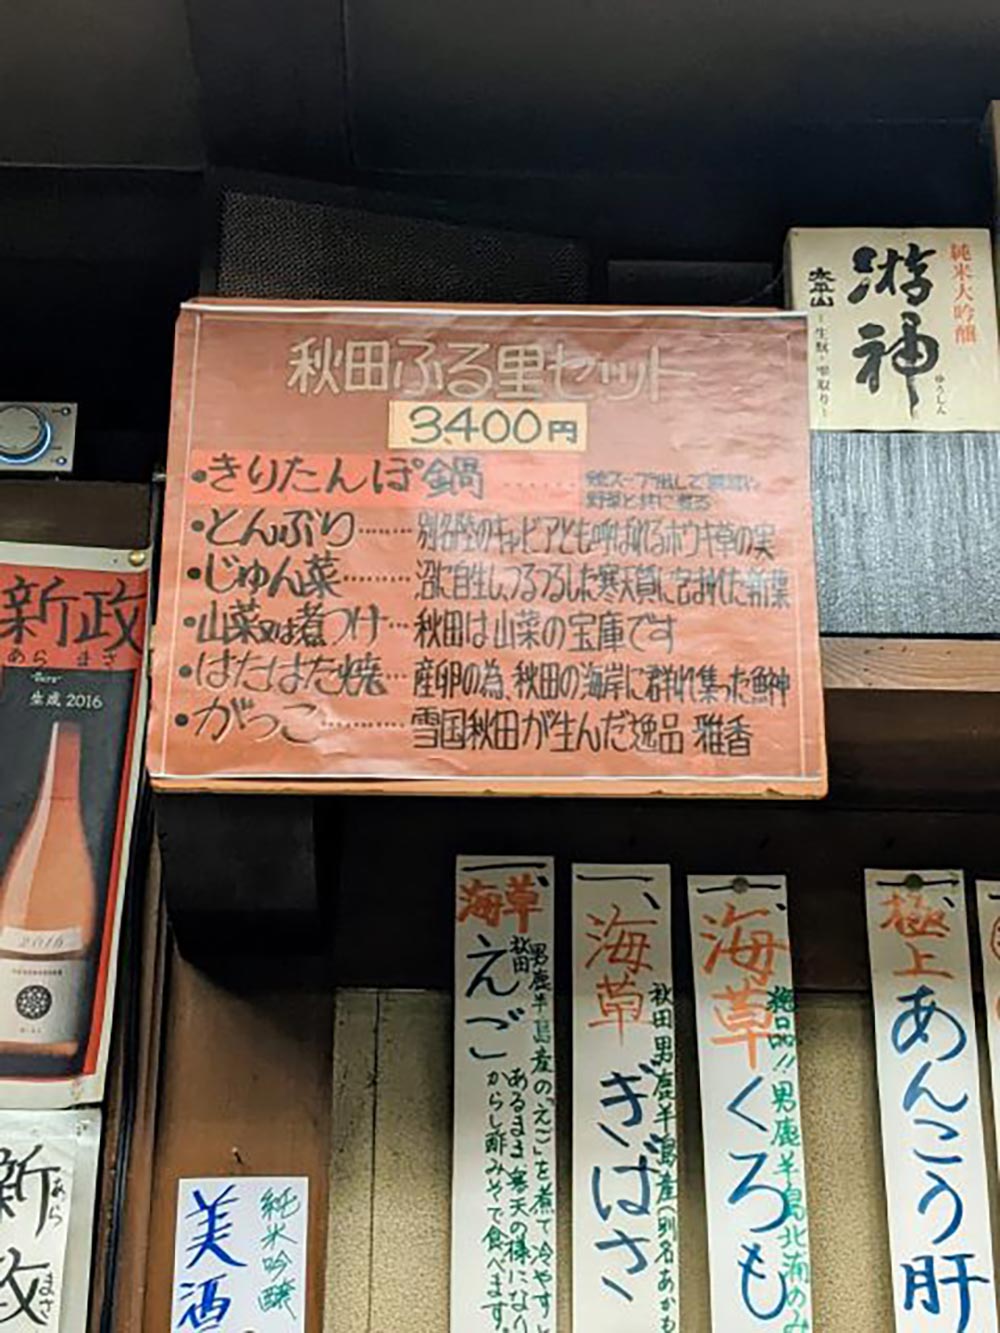 秋田ふる里セット
3400円
・きりたんぽ鍋……
野菜と共に煮る
・とんぶり……別名陸のキャビアとも呼ばれるホウキ草の実
・じゅん菜……沼に自生しつるつるした寒天質に包まれた新葉
・山菜又は煮つけ…秋田は山菜の宝庫です
・はたはた焼…産卵の為、秋田の海岸に群れ集った魚神
・がっこ……雪国秋田が生んだ逸品 雅香
純米大吟醸
游神
ゆうしん
太平山
生酛・雫取り
新政
あら まさ
生成 2016
2016
新政
あら まさ
純米吟醸
美酒
一、海草 えご
秋田男鹿半島産の「えご」を煮て冷やすと
あるまま寒天の様になり
からし酢みそで食べます。
一、海草 ぎばさ
秋田男鹿半島産(別名あかも
一、海草 くろも
絶品!!男鹿半島北浦のみ
一、極上 あんこう肝